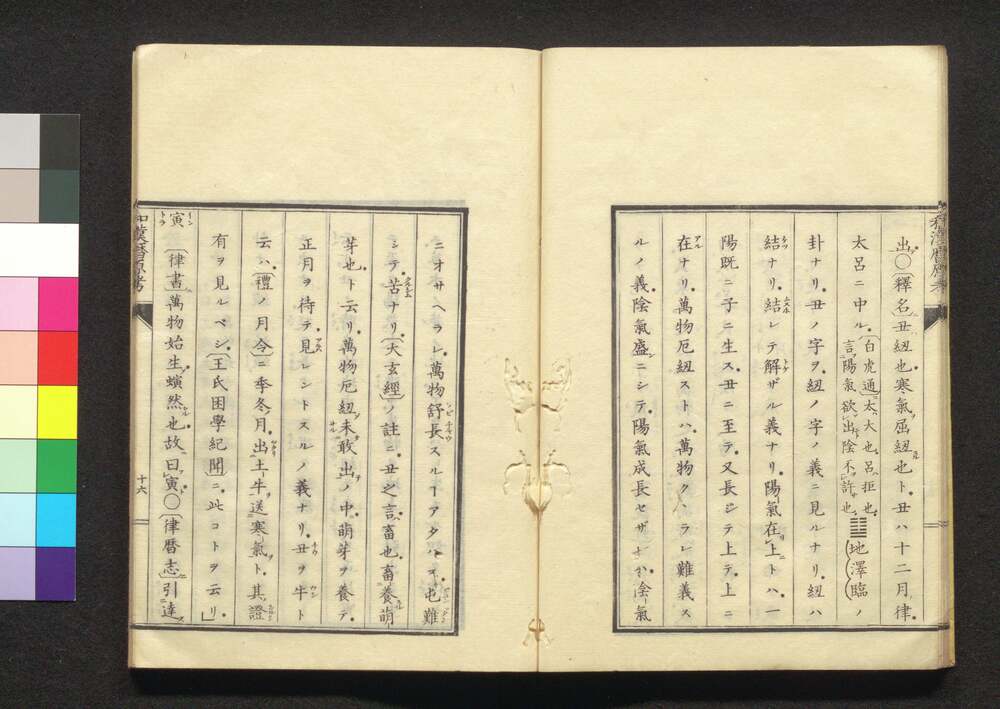 出○〔釋名〕丑紐也寒氣屈紐也ト丑ハ十二月律
太呂ニ中ル〔白虎通〕太大也呂拒也
言陽氣欲出陰不許也䷒〔地澤臨〕ノ
卦ナリ丑ノ字ヲ紐ノ字ノ義ニ見ルナリ紐ハ
結ナリ結レテ解ザル義ナリ陽氣在上トハ一
陽既ニ子ニ生ス丑ニ至テ又長ジテ上テ上ニ
在ナリ萬物厄紐ストハ萬物クハラレ難義ス
ルノ義陰氣盛ニシテ陽氣成長セザ陰氣
ニオサヘラレ萬物舒長スルーアタハズ屯難
シテ苦ナリ〔大玄經〕ノ註ニ丑之言畜也畜養萌
芽也ト云リ萬物厄紐未敢出ノ中萌芽ヲ養テ
正月ヲ待テ見レントスルノ義ナリ丑ヲ牛ト
云ハ〔禮〕ノ月令ニ季冬月出土牛送寒氣ト其證
有ヲ見ルベシ〔王氏困學紀聞〕ニ此コトヲ云リ」
寅〔律書〕萬物始生螾然也故曰寅○〔律暦志〕引達
十六